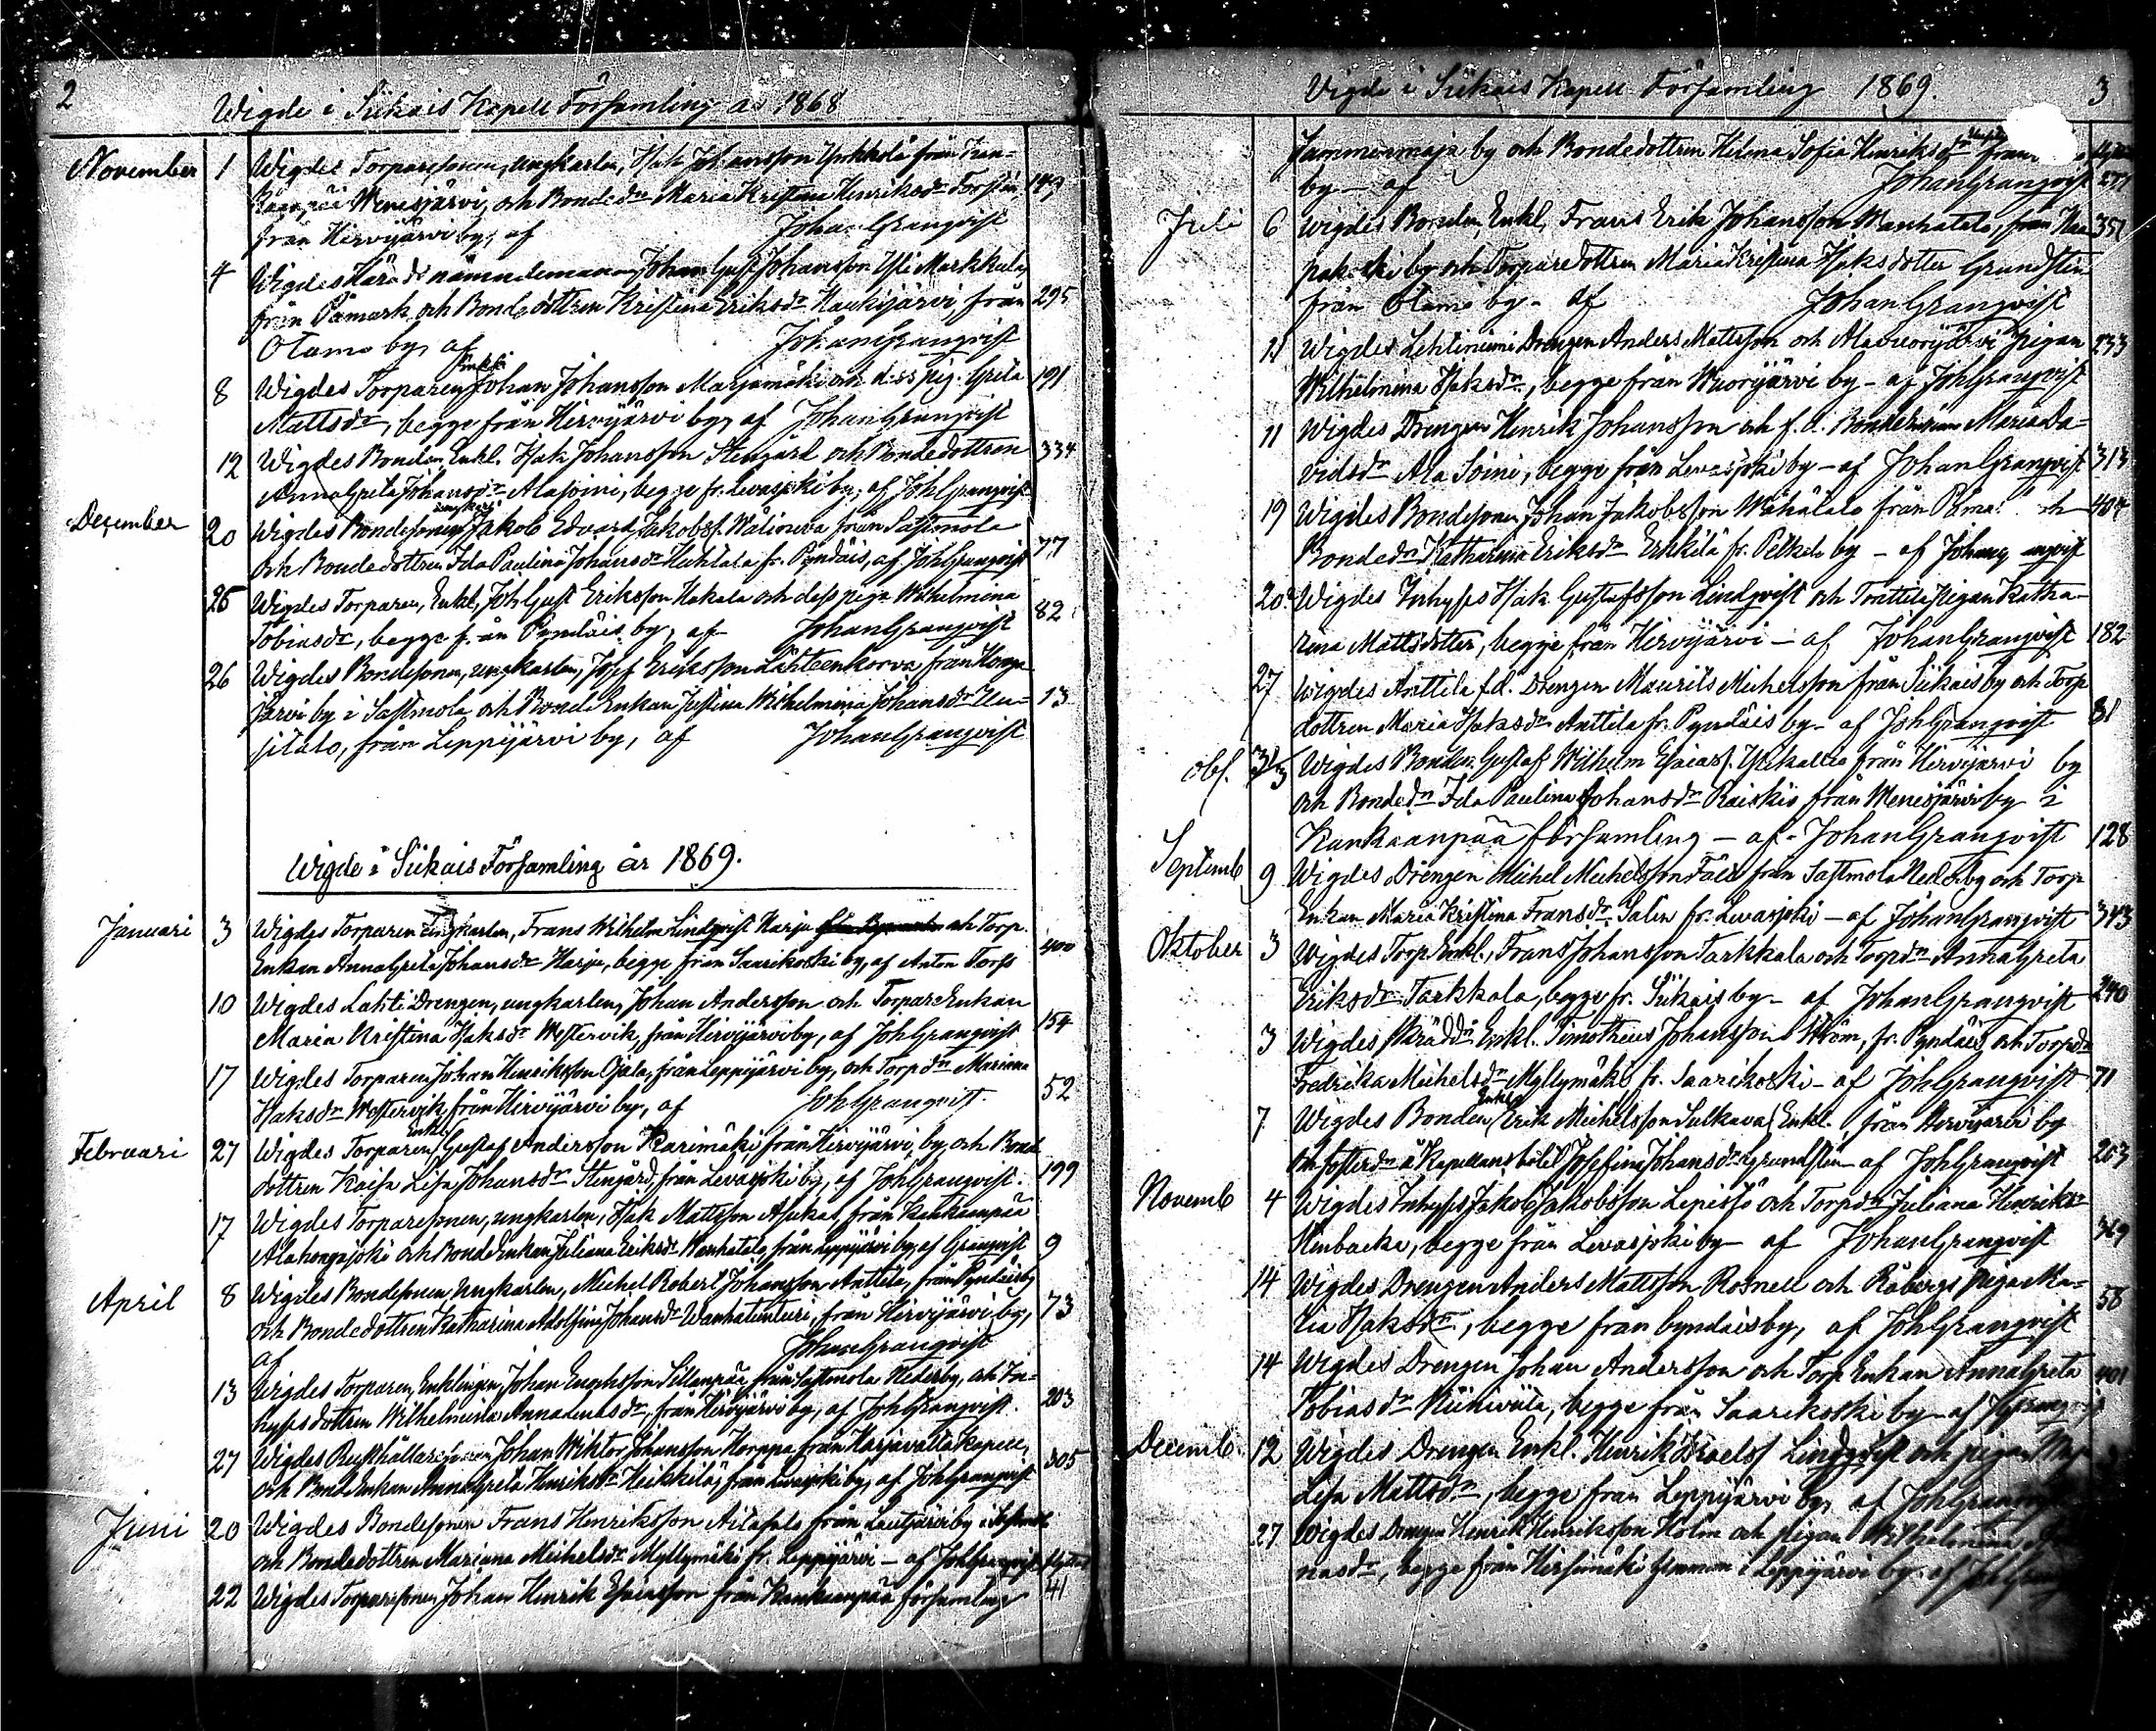 2
Wigde i Siikais Kapell Församling år 1868
November 1 Wigdes Torparesonen, ungkarlen, Isak Johansson Yrkkölä från
Wenesjärvi, och Bondedr Maria Kristina Henriksdr Forstén, 149
från Hirvijärvi by, af Johan Granqvist
4 Wigdes Häradsnämndemannen Johan Gust. Johansson Yli Markkula,
från Påmark och Bondedottren Kristina Eriksdr Haukijärvi, från 295
Otamo by, af Johan Granqvist
8 Wigdes Torparen Enkl. Johan Johansson Marjamäki och dess pig. Greta 191
Mattsdr, begge från Hirvijärvi by, af Johan Granqvist
12 Wigdes Bonden, Enkl. Isak Johansson Stengård och Bondedottren 334
Anna Greta Johansdr Alasoini, begge fr. Levasjoki by, af Joh Granqvist
December 20 Wigdes Bondesonen ungkarl Jakob Edvard Jakobss. Wälineva från Sastmola
och Bondedottren Ida Paulina Johansdr Huhtala fr. Pyndäis, af Joh Granqvist 77
25 Wigdes Torparen, Enkl, Joh Gust Eriksson Hakala och dess piga Wilhelmina
Tobiasdr, begge från Pyndäis by, af Johan Granqvist 82
26 Wigdes Bondesonen, ungkarlen, Josef Eriksson Lähteenkorva från Honga-
järvi by i Sastmola och Bonde Enkan Justina Wilhelmina Johansdr Uu- 13
sitalo, från Leppijärvi by, af Johan Granqvist
Wigde i Siikais Församling år 1869.
Januari 3 Wigdes Torparen Ungkarlen, Frans Wilhelm Lindqvist Harju och Torp.
Enkan Anna Greta Johansdr Harju, begge från Saarikoski by, af Anton Forss 400
10 Wigdes Lahti Drengen, ungkarlen, Johan Andersson och Torpare Enkan
Maria Kristina Isaksdr Westervik, från Hirvijärvi by, af Joh Granqvist 154
17 Wigdes Torparen Johan Henriksson Ojala, från Leppijärvi by, och Torp dr Mariana
Isaksdr Westervik, från Hirvijärvi by, af Joh Granqvist. 52
Februari 27 Wigdes Torparen Enkl Gustaf Andersson Karimäki från Hirvijärvi by, och Bond
dottren Kaisa Lisa Johansdr Stengård, från Levasjoki by, af Joh Granqvist. 199
17 Wigdes Torparesonen, ungkarlen, Isak Mattsson Asukas, från Kankaanpää
Alahongajoki och Bonde Enkan Juliana Eriksdr Wanhatalo, från Leppijärvi by, af Granqvist 9
April 8 Wigdes Bondesonen, Ungkarlen, Michel Robert Johansson Anttila, från Pyndäis by
och Bondedottren Katharina Adolfina Johansdr Wanhatunturi, från Hirvijärvi by, 73
af Johan Granqvist
13 Wigdes Torparen, Enklingen, Johan Enochsson Sillanpää från Sastmola Nederby, och In-
hysesdottren Wilhelmina Annalenasdr, från Hirvijärvi by, af Joh Granqvist. 203
27 Wigdes Rusthållaresonen Johan Wiktor Johansson Korppa från Harjavalta Kapell,
och Bond Enkan Anna Greta Henriksdr Heikkilä, från Levasjoki by, af Joh Granqvist 305
Juni 20 Wigdes Bondesonen Frans Henriksson Ailasalo från Lautjärvi by i Sastmola
och Bondedottren Mariana Michelsdr Myllymäki fr. Leppijärvi - af Joh Granqvist flyttad
22 Wigdes Torparesonen Johan Henrik Esaiasson från Kankaanpää församling 41
Wigde i Siikais Kapell Församling 1869. 3
Jammenmaja by och Bondedottren Helena Sofia Henriksdr från
by - af Johan Granqvist 277
Juli 6 Wigdes Bonden, Enkl, Frans Erik Johansson Wanhatalo, från Haa- 351
pakoski by och Torparedottren Maria Kristina Isaksdotter Grundstén
från Otamo by - af Johan Granqvist
11 Wigdes Lehtiniemi Drengen Anders Mattsson och Alavuorijärvi pigan 233
Wilhelmina Isaksdr, begge från Wuorijärvi by - af Joh Granqvist
11 Wigdes Drengen Henrik Johansson och f.d. Bondehustrun Maria Da-
vidsdr Ala Soini, begge från Levasjoki by - af Johan Granqvist 313
19 Wigdes Bondesonen Johan Jakobsson Wähätalo från Påmark och 404
Bondedr Katharina Eriksdr Erkkilä fr. Petkele by - af Johan Granqvist
20 Wigdes Inhyses Isak Gustafsson Lindqvist och Trattila pigan Katha-
rina Mattsdotter, begge från Hirvijärvi - af Johan Granqvist 182
27 Wigdes Anttila f.d. Drengen Maurits Michelsson från Siikais by och Torp
dottren Maria Isaksdr Anttila fr. Pyndäis by - af Joh Granqvist 81
Obs. Wigdes Bonden Gustaf Wilhelm Esaiass. Ylikallio från Hirvijärvi by
och Bondedr Ida Paulina Johansdr Raiskio från Wenesjärvi by i
Kankaanpää församling - af Johan Granqvist 128
Septemb 9 Wigdes Drengen Michel Michelsson Fält från Sastmola Nederby och Torp
Enkan Maria Kristina Fransdr Salin fr. Levasjoki - af Johan Granqvist 343
Oktober 3 Wigdes Torp Enkl., Frans Johansson Tarkkala och Torpdr Anna Greta
Eriksdr Tarkkala, begge fr. Siikais by - af Johan Granqvist 240
3 Wigdes Skrädd. Enkl. Timotheus Johansson Ström, fr. Pyndäis, och Torpdr
Fredrika Michelsdr Myllymäki fr. Saarikoski - af Joh Granqvist 71
7 Wigdes Bonden Enkl Erik Michelsson Sulkava Enkl., från Hirvijärvi by
och fosterdr å Kapellansbolet Josefina Johansdr Grundstén - af Joh Granqvist 203
Novemb 4 Wigdes Inhyses Jakob Jakobsson Lepistö och Torpdr Juliana Henriksdr
Stenbacka, begge från Levasjoki by - af Johan Granqvist 369
14 Wigdes Drengen Anders Mattsson Rosnell och Råbergs piga Ma-
ria Isaksdr, begge från Pyndäis by, af Joh Granqvist 58
14 Wigdes Drengen Johan Andersson och Torp Enkan Anna Greta 401
Tobiasdr Niinivila, begge från Saarikoski by - af J Granqvist
Decemb. 12 Wigdes Drengen Enkl. Henrik Israelss Lindqvist och pigan
Lisa Mattsdr, begge från Leppijärvi by, af Joh Granqvist
27 Wigdes Drengen Henrik Henriksson Holm och pigan Wilhelmina
nasdr, begge från Hirsimäki hemman i Leppijärvi by - af Joh Granqvist